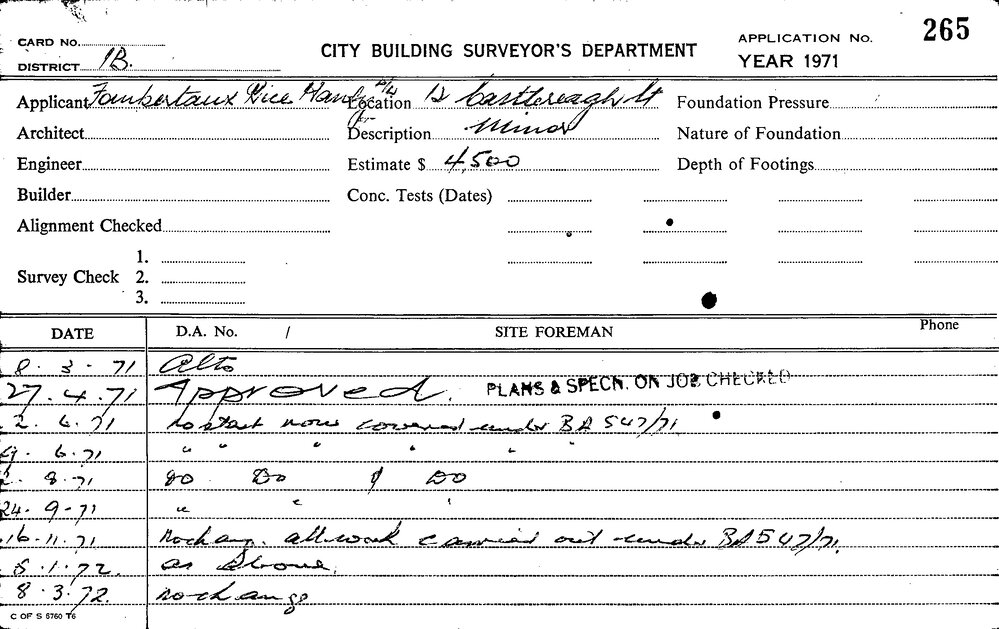 CARD No. CITY BUILDING SURVEYOR'S DEPARTMENT APPLICATION No. 265
DISTRICT 1B. YEAR 1971
Applicant Fombertaux Rice Hanly P/L Location 12 Castlereagh St Foundation Pressure
Architect Description Minor Nature of Foundation
Engineer Estimate $ 4,500 Depth of Footings
Builder Conc. Tests (Dates)
Alignment Checked
1.
Survey Check 2.
3.
DATE D.A. No. / SITE FOREMAN Phone
8.3.71 Alto
27.4.71 Approved. PLANS & SPECN. ON JOB CHECKED
2.6.71 no start now covered under BA 547/71
9.6.71 " " " " " "
8.71 do Do & Do
24.9.71 " " "
16.11.71 no change. all work carried out under BA 547/71.
5.1.72. as Above.
8.3.72. no change
C OF S 6760 T6